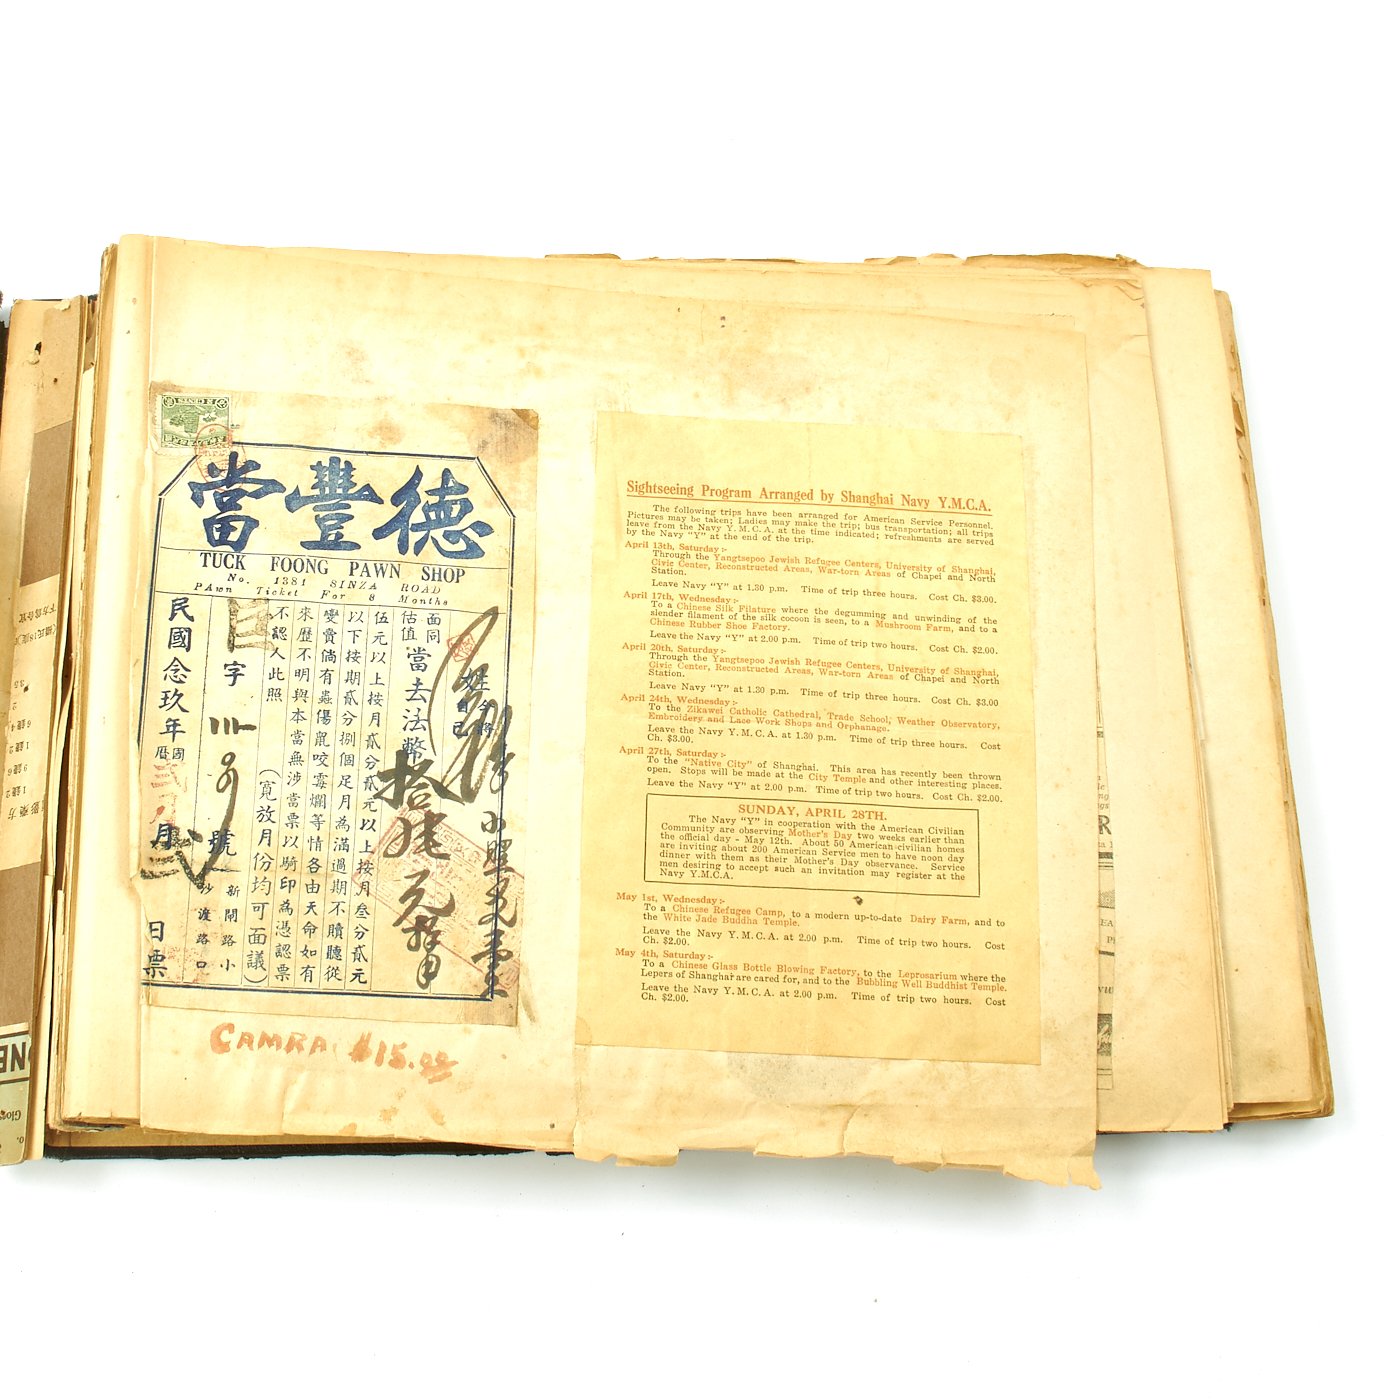 德豐當
TUCK FOONG PAWN SHOP
No. 1381 SINZA ROAD
PAwn Ticket For 8 Months
面同
估值當去法幣
伍元以上按月貳分貳元以上按月叁分貳元
以下按期貳分捌個足月為滿過期不贖聽從
變賣倘有蟲傷鼠咬霉爛等情各由天命如有
來歷不明與本當無涉當票以騎印為憑認票
不認人此照
(寬放月份均可面議)
字
號
新閘路小
沙渡路口
民國念玖年
國曆
月
日票
CAMRA $15.00
Sightseeing Program Arranged by Shanghai Navy Y.M.C.A.
The following trips have been arranged for American Service Personnel.
Pictures may be taken; Ladies may make the trip; bus transportation; all trips
leave from the Navy Y.M.C.A. at the time indicated; refreshments are served
by the Navy "Y" at the end of the trip.
April 13th, Saturday:-
Through the Yangtsepoo Jewish Refugee Centers, University of Shanghai,
Civic Center, Reconstructed Areas, War-torn Areas of Chapei and North
Station.
Leave Navy "Y" at 1.30 p.m. Time of trip three hours. Cost Ch. $3.00.
April 17th, Wednesday:-
To a Chinese Silk Filature where the degumming and unwinding of the
slender filament of the silk cocoon is seen, to a Mushroom Farm, and to a
Chinese Rubber Shoe Factory.
Leave the Navy "Y" at 2.00 p.m. Time of trip two hours. Cost Ch. $2.00.
April 20th, Saturday:-
Through the Yangtsepoo Jewish Refugee Centers, University of Shanghai,
Civic Center, Reconstructed Areas, War-torn Areas of Chapei and North
Station.
Leave Navy "Y" at 1.30 p.m. Time of trip three hours. Cost Ch. $3.00
April 24th, Wednesday:-
To the Zikawei Catholic Cathedral, Trade School, Weather Observatory,
Embroidery and Lace Work Shops and Orphanage.
Leave the Navy Y.M.C.A. at 1.30 p.m. Time of trip three hours. Cost
Ch. $3.00.
April 27th, Saturday:-
To the "Native City" of Shanghai. This area has recently been thrown
open. Stops will be made at the City Temple and other interesting places.
Leave the Navy "Y" at 2.00 p.m. Time of trip two hours. Cost Ch. $2.00.
SUNDAY, APRIL 28TH.
The Navy "Y" in cooperation with the American Civilian
Community are observing Mother's Day two weeks earlier than
the official day - May 12th. About 50 American civilian homes
are inviting about 200 American Service men to have noon day
dinner with them as their Mother's Day observance. Service
men desiring to accept such an invitation may register at the
Navy Y.M.C.A.
May 1st, Wednesday:-
To a Chinese Refugee Camp, to a modern up-to-date Dairy Farm, and to
the White Jade Buddha Temple.
Leave the Navy Y.M.C.A. at 2.00 p.m. Time of trip two hours. Cost
Ch. $2.00.
May 4th, Saturday:-
To a Chinese Glass Bottle Blowing Factory, to the Leprosarium where the
Lepers of Shanghai are cared for, and to the Bubbling Well Buddhist Temple.
Leave the Navy Y.M.C.A. at 2.00 p.m. Time of trip two hours. Cost
Ch. $2.00.